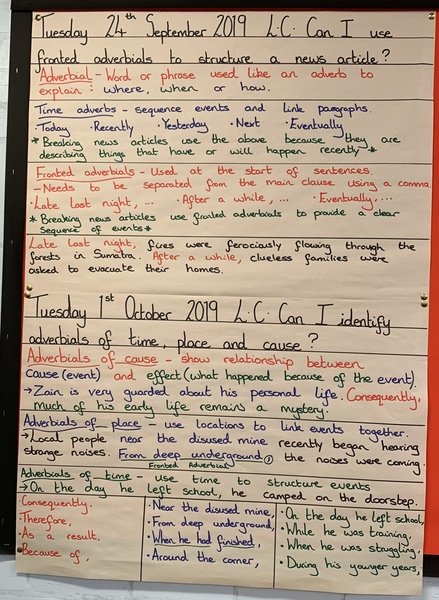 Tuesday 24th September 2019 L.C: Can I use
fronted adverbials to structure a news article?
Adverbial - Word or phrase used like an adverb to
explain : where, when or how.
Time adverbs - sequence events and link paragraphs.
· Today · Recently · Yesterday · Next · Eventually
* Breaking news articles use the above because they are
describing things that have or will happen recently *
Fronted adverbials - Used at the start of sentences.
- Needs to be separated from the main clause using a comma.
· Late last night, ... · After a while, ... · Eventually....
* Breaking news articles use fronted adverbials to provide a clear
sequence of events *
Late last night, fires were ferociously flowing through the
forests in Sumatra. After a while, clueless families were
asked to evacuate their homes.
Tuesday 1st October 2019 L.C: Can I identify
adverbials of time, place and cause?
Adverbials of cause - show relationship between
cause (event) and effect (what happened because of the event).
→ Zain is very guarded about his personal life. Consequently,
much of his early life remains a mystery.
Adverbials of place - use locations to link events together.
→ Local people near the disused mine recently began hearing
strange noises. From deep underground, the noises were coming.
Fronted Adverbial
Adverbials of time - use time to structure events
→ On the day he left school, he camped on the doorstep.
· Consequently.
· Therefore,
· As a result,
· Because of,
· Near the disused mine,
· From deep underground,
· When he had finished,
· Around the corner,
· On the day he left school,
· While he was training.
· When he was struggling.
· During his younger years,